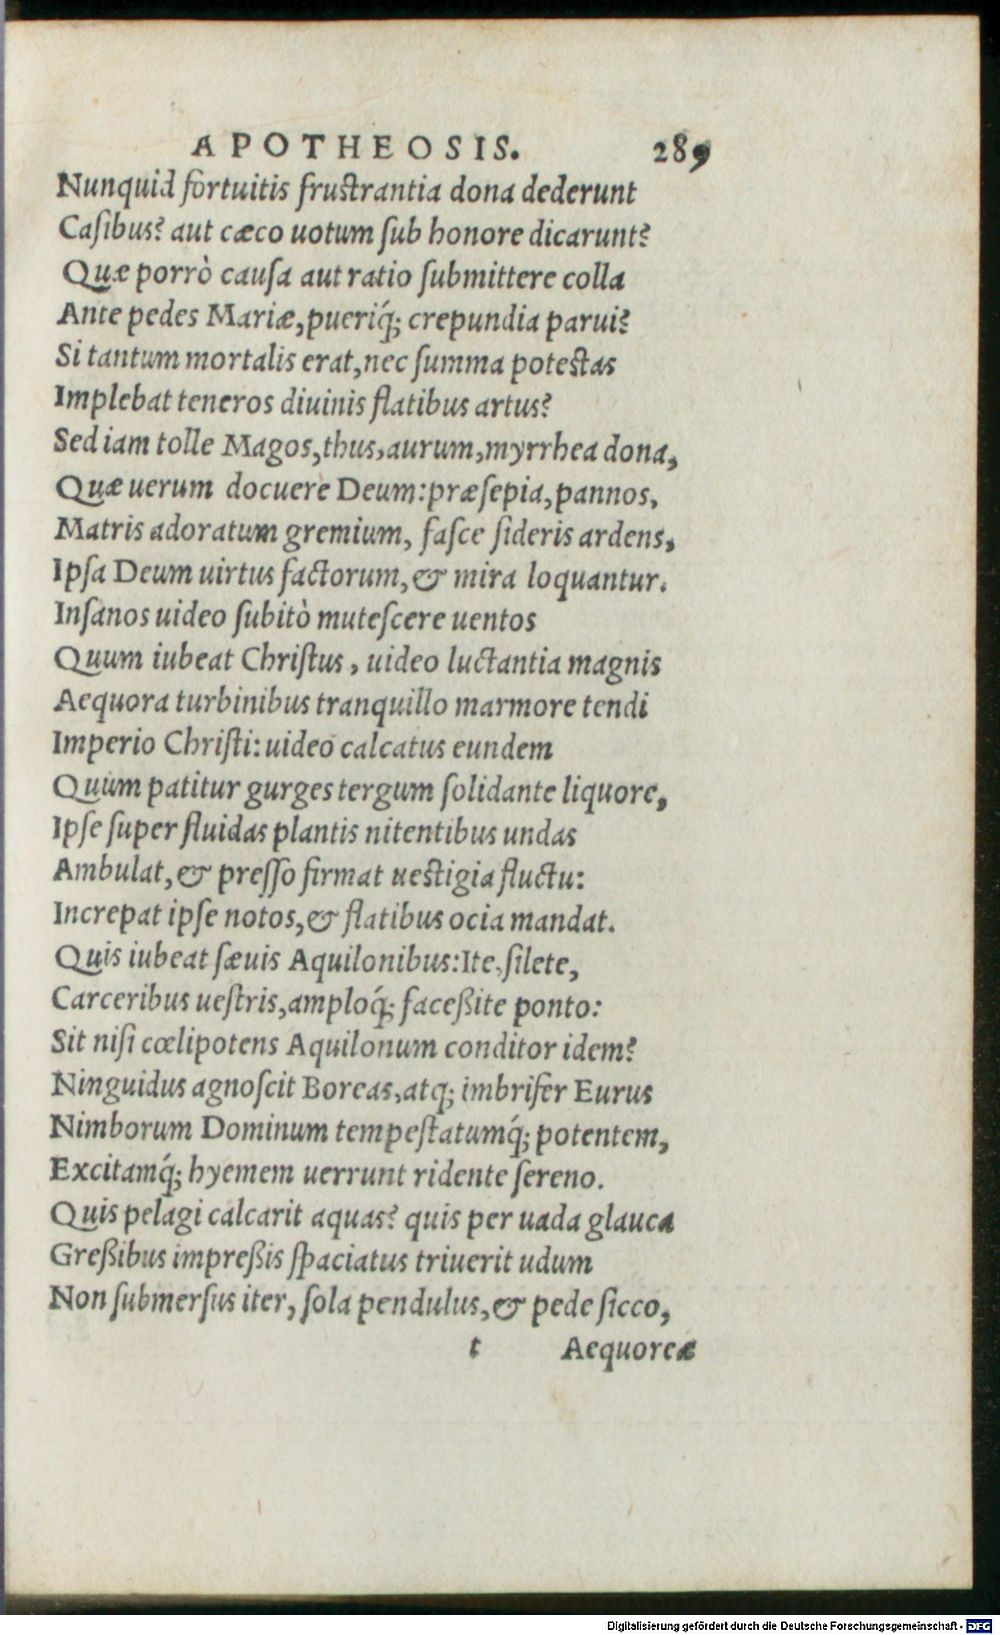 APOTHEOSIS. 289
Nunquid fortuitis frustrantia dona dederunt
Caſibus? aut cæco uotum ſub honore dicarunt?
Quæ porrò cauſa aut ratio ſubmittere colla
Ante pedes Mariæ, pueriq́; crepundia parui?
Si tantum mortalis erat, nec ſumma potestas
Implebat teneros diuinis flatibus artus?
Sed iam tolle Magos, thus, aurum, myrrhea dona,
Quæ uerum docuere Deum: præſepia, pannos,
Matris adoratum gremium, faſce ſideris ardens,
Ipſa Deum uirtus factorum, & mira loquantur.
Inſanos uideo ſubitò muteſcere uentos
Quum iubeat Chriſtus, uideo luctantia magnis
Aequora turbinibus tranquillo marmore tendi
Imperio Chriſti: uideo calcatus eundem
Quum patitur gurges tergum ſolidante liquore,
Ipſe ſuper fluidas plantis nitentibus undas
Ambulat, & preſſo firmat uestigia fluctu:
Increpat ipſe notos, & flatibus ocia mandat.
Quis iubeat ſæuis Aquilonibus: Ite, ſilete,
Carceribus ueſtris, amploq́; faceßite ponto:
Sit niſi cœlipotens Aquilonum conditor idem?
Ninguidus agnoſcit Boreas, atq; imbrifer Eurus
Nimborum Dominum tempeſtatumq́; potentem,
Excitamq́; hyemem uerrunt ridente ſereno.
Quis pelagi calcarit aquas? quis per uada glauca
Greßibus impreßis ſpaciatus triuerit udum
Non ſubmerſus iter, ſola pendulus, & pede ſicco,
t Aequoreæ
Digitalisierung gefördert durch die Deutsche Forschungsgemeinschaft - DFG